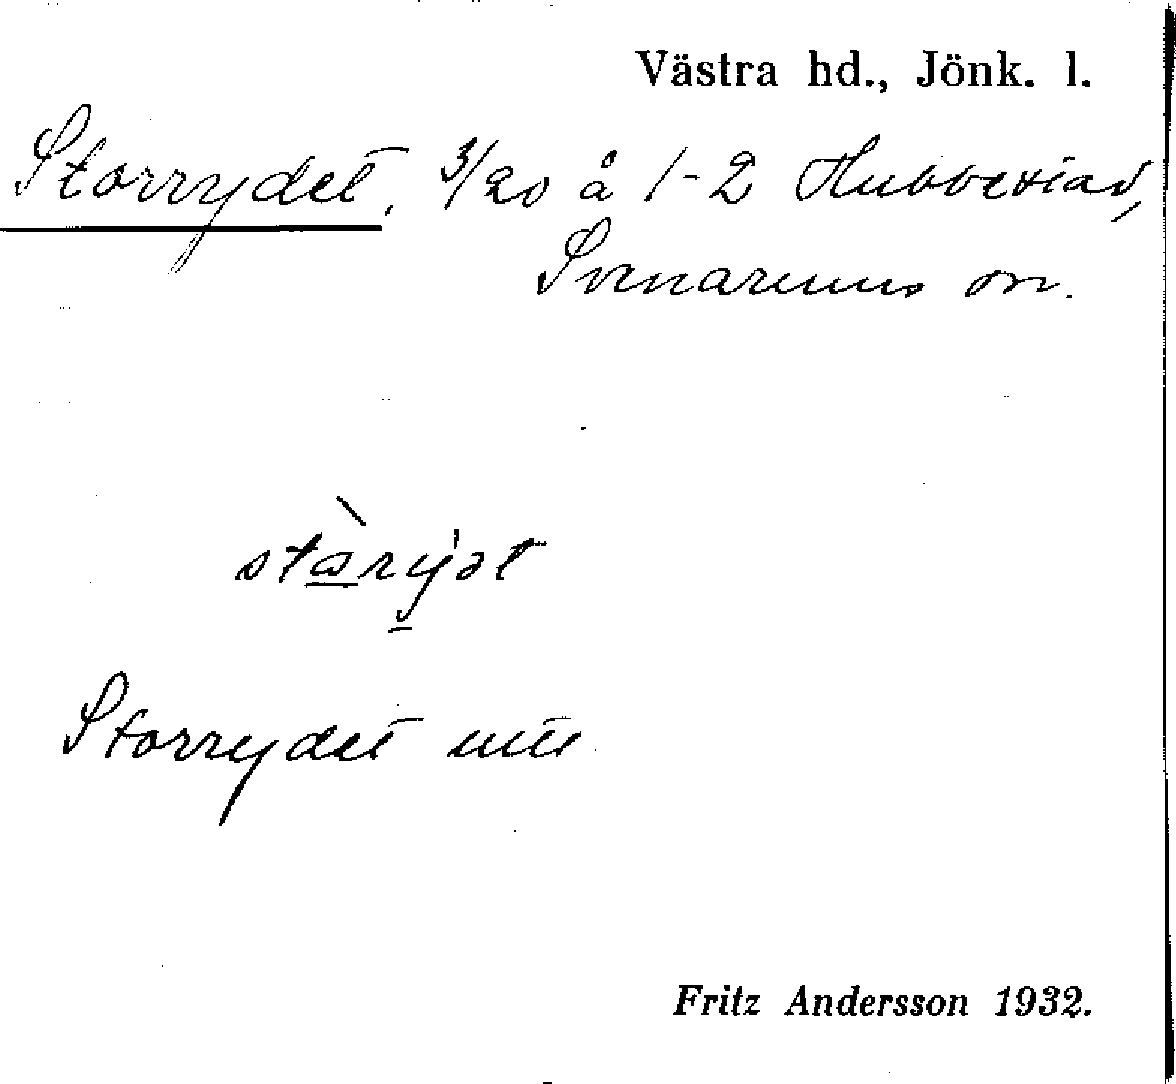 Västra hd., Jönk. l.
Storrydet, 3/20 å 1-2 Hubbestad,
Svenarums sn.
Storrydet
Fritz Andersson 1932.